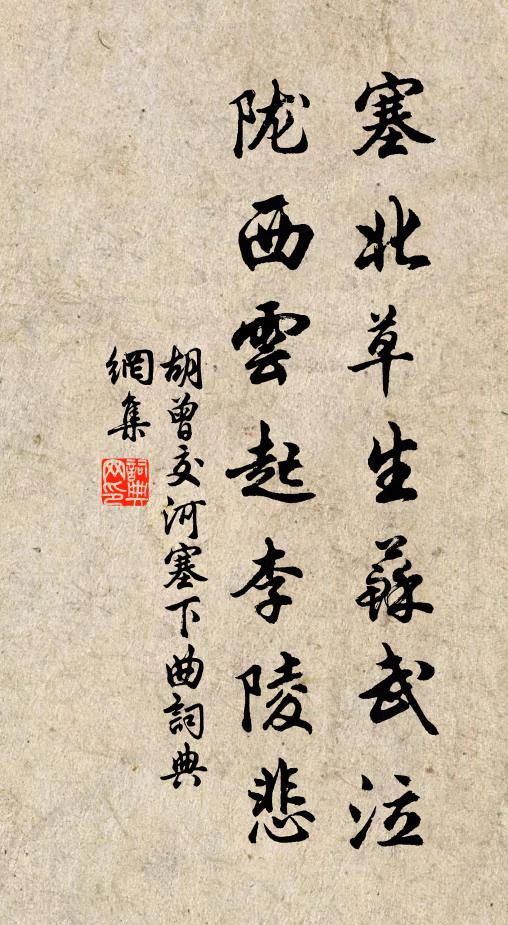 塞北草生蘇武泣
陇西雲起李陵悲
胡曾交河塞下曲詞典
網集
詞典
网印